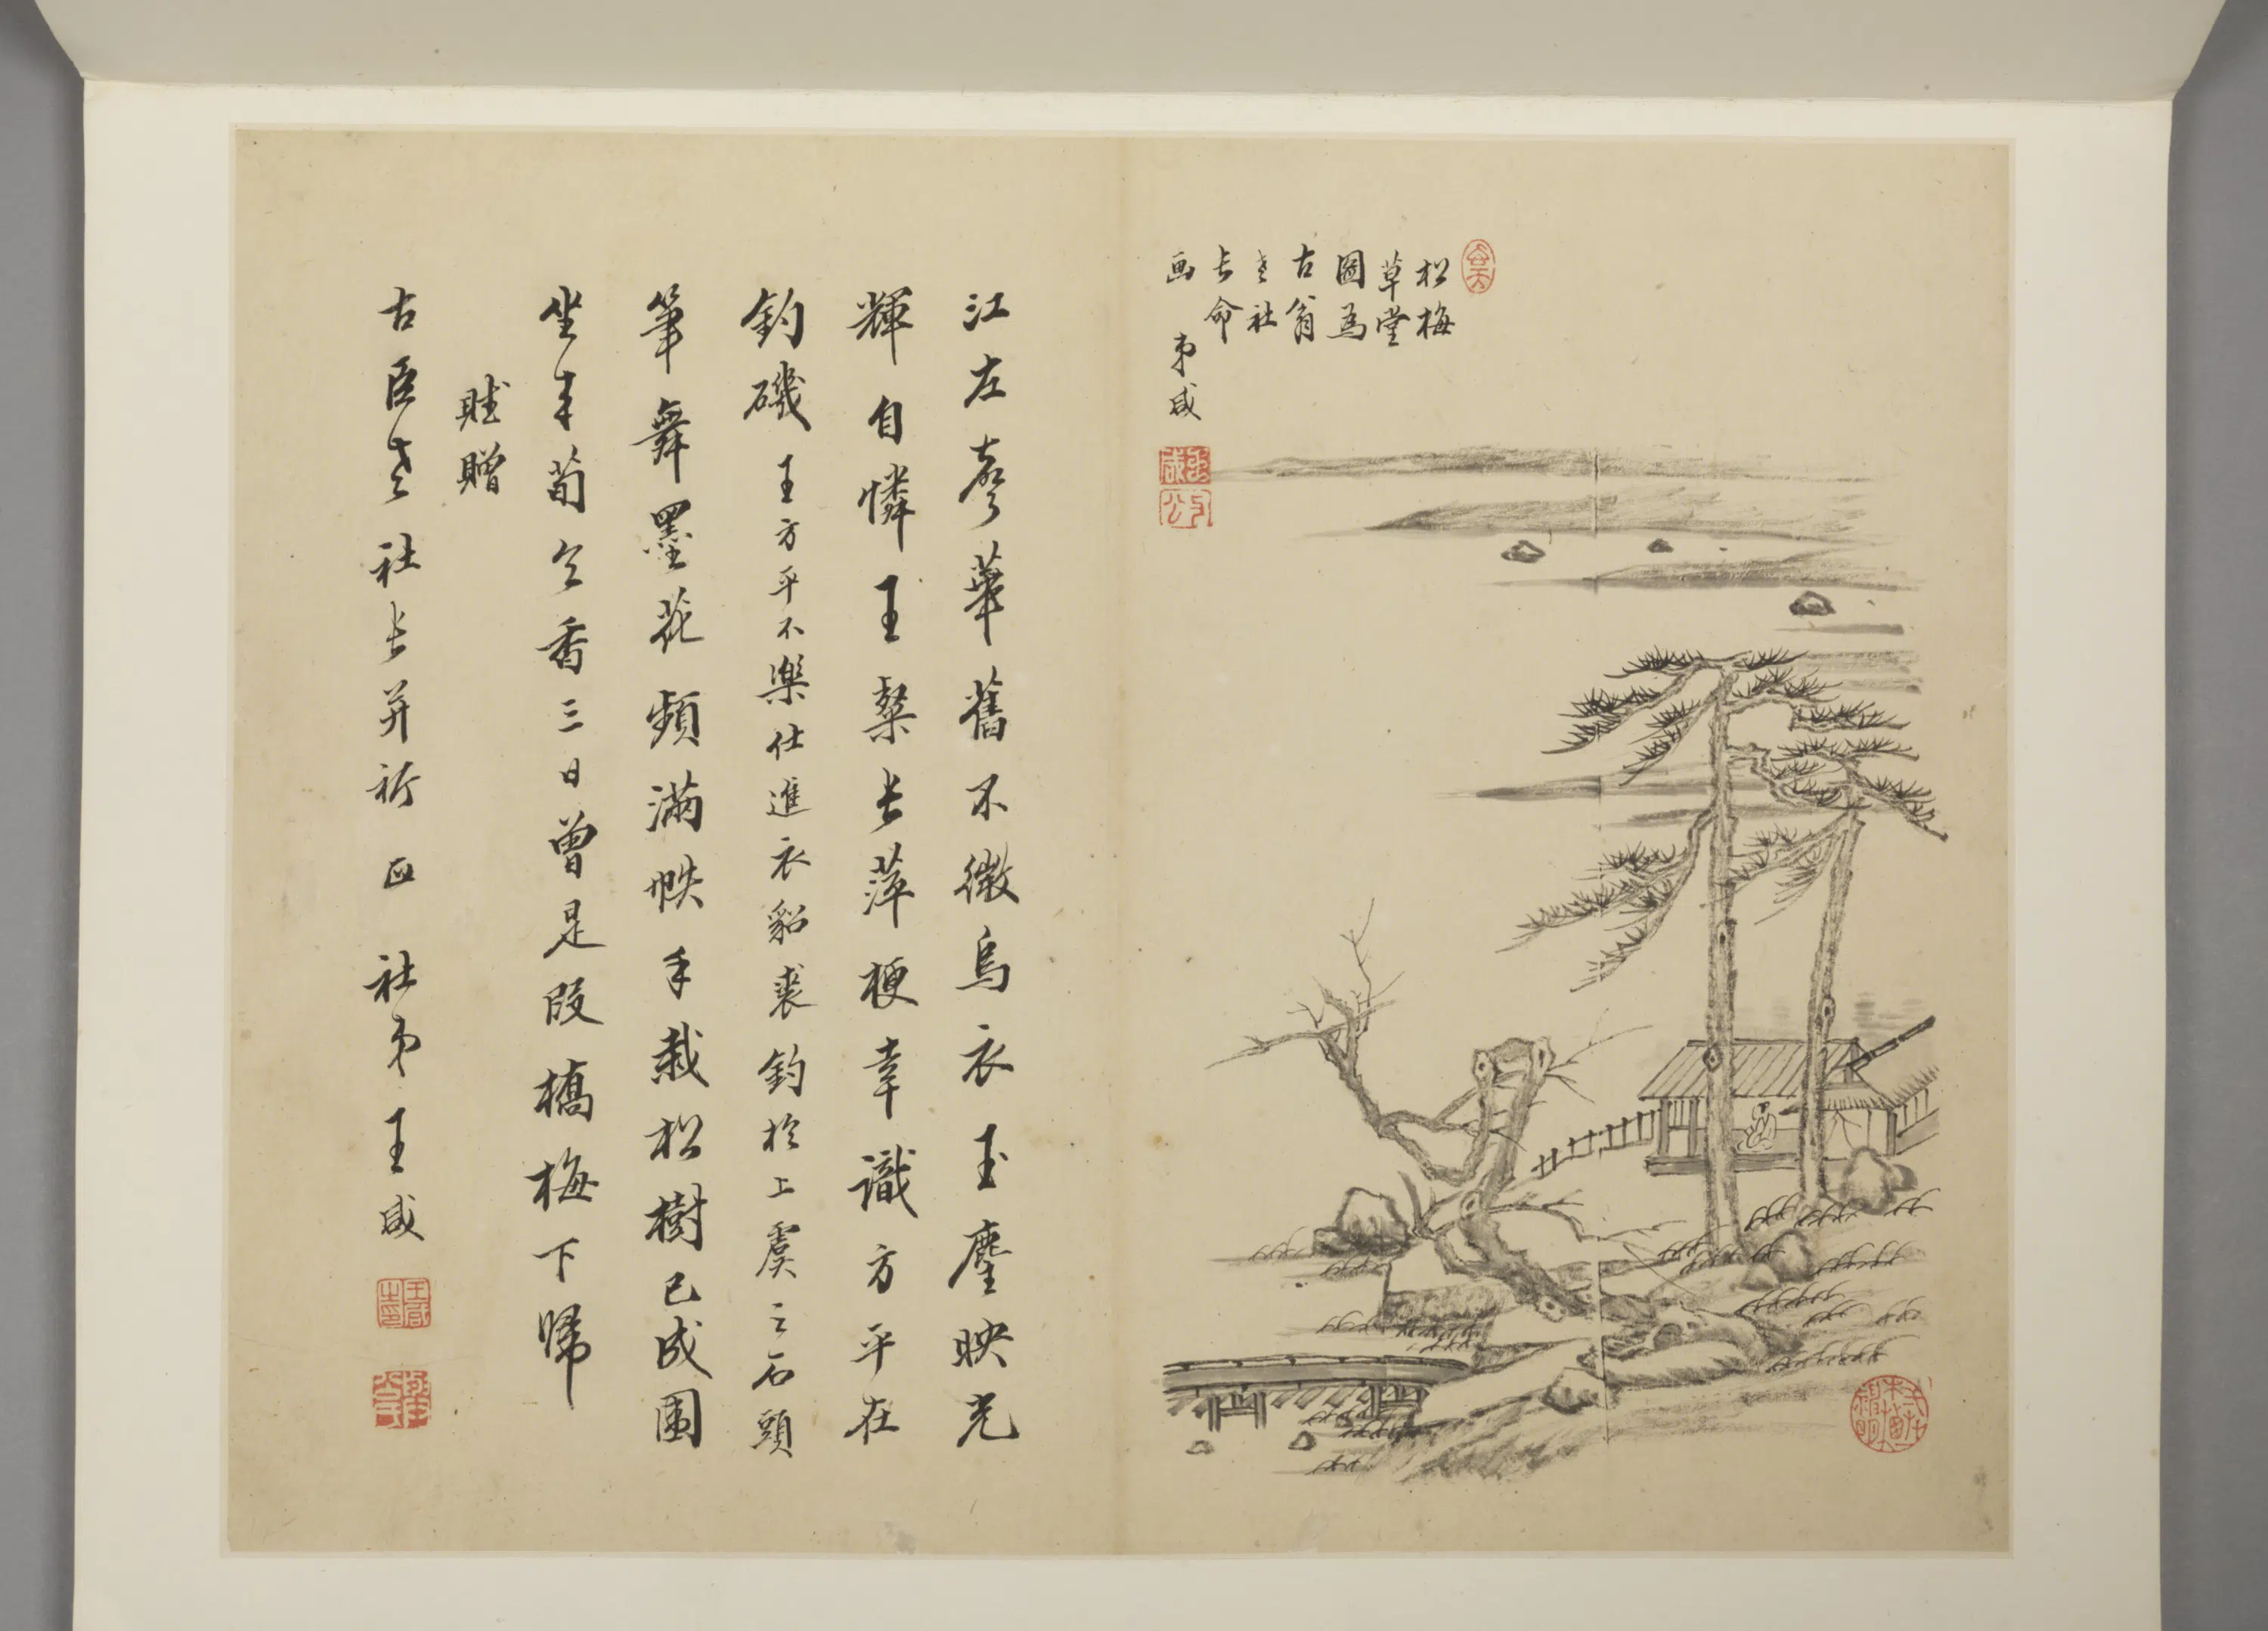 松梅
草堂
圖為
古翁
老社
長命
画
弟咸
江左聲華舊不微烏衣玉麈映光
輝自憐王粲長萍梗幸識方平在
釣磯王方平不樂仕進衣貂裘釣於上虞之石頭
筆舞墨花頻滿帙手栽松樹已成圍
坐來荀令香三日曾是段橋梅下歸
賦贈
古臣老社長并祈正社弟王咸
王咸之印